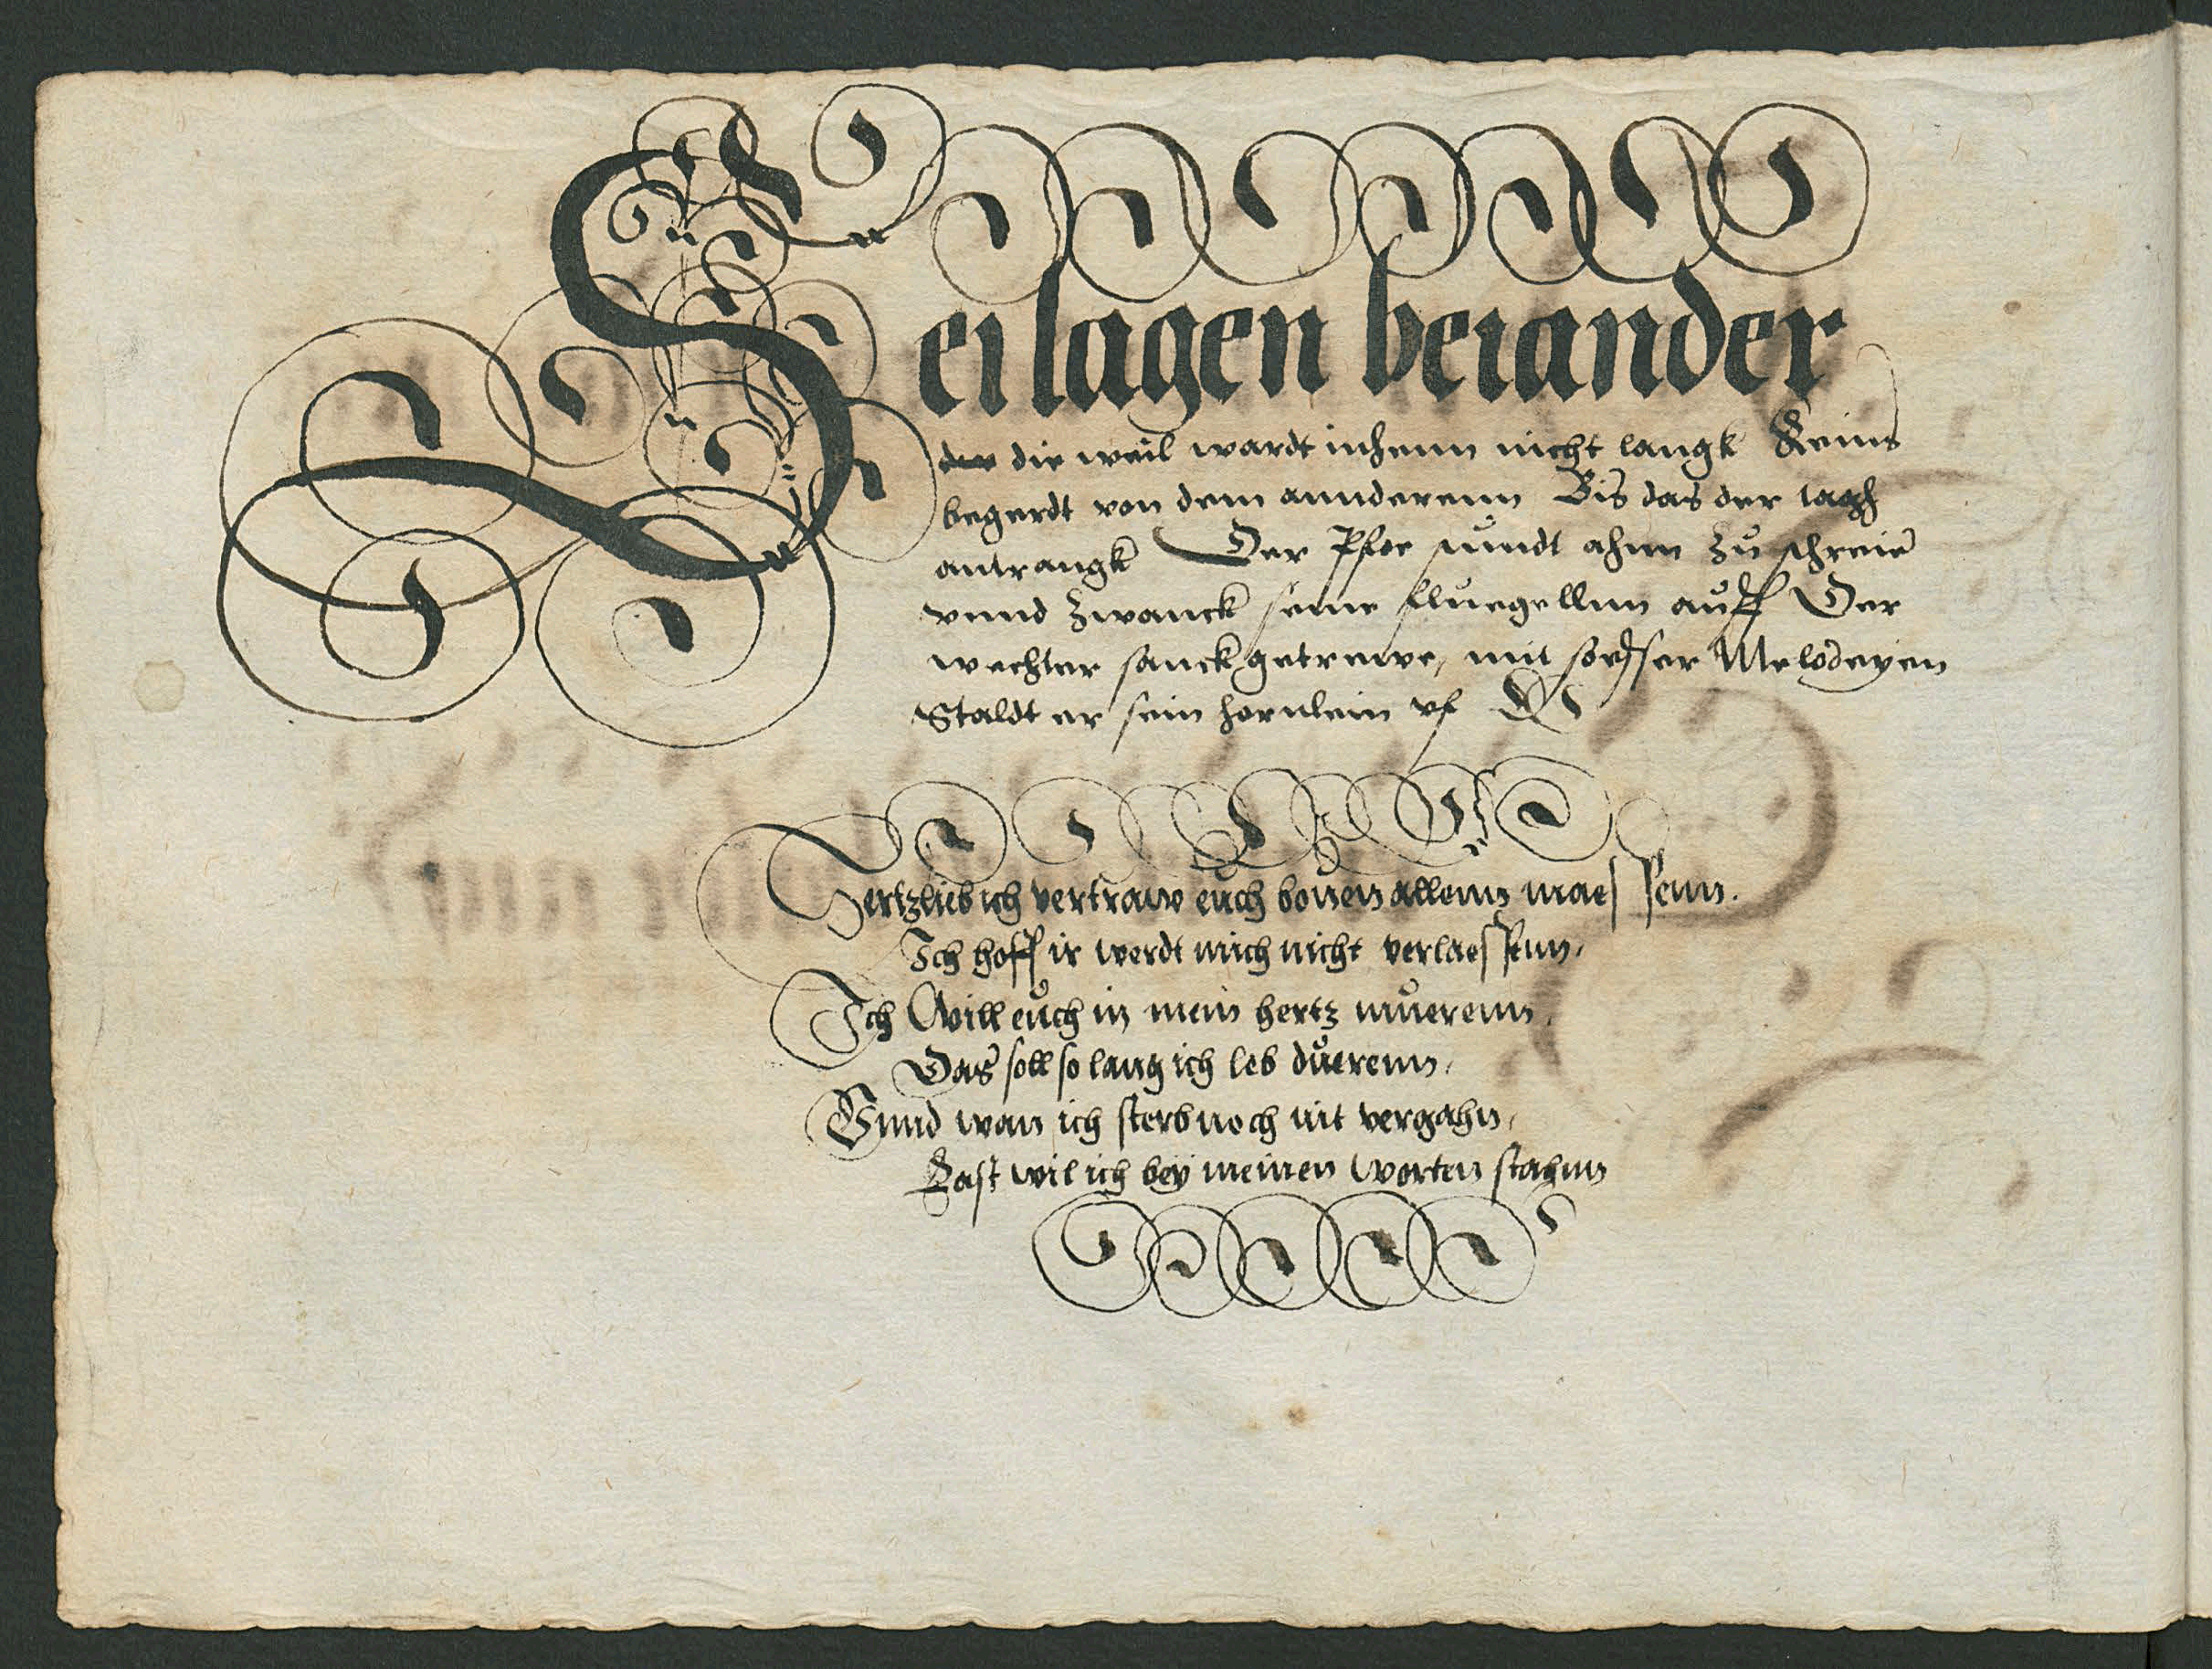 Sei lagen beiander
der die weil wardt inhenn nicht langk Keins
begerdt von dem annderenn Bis das der tagh
antrangk Der Pfoe aundt ahnn zů schreie
vnnd zwanck seine fluegellnn auff Der
wechter sanck getrewe, mit soesser Melodeyen
Staldt er sein hornlein vf
Hertzlieb ich vertraw eůch bouen allenn maessenn.
Ich hoff ir werdt mich nicht verlaessenn,
Ich Will eůch in mein hertz můerenn,
Das soll so lang ich leb důerenn,
Vnnd wan ich sterb noch nit vergahn,
Fast wil ich beÿ meinen Worten stahnn